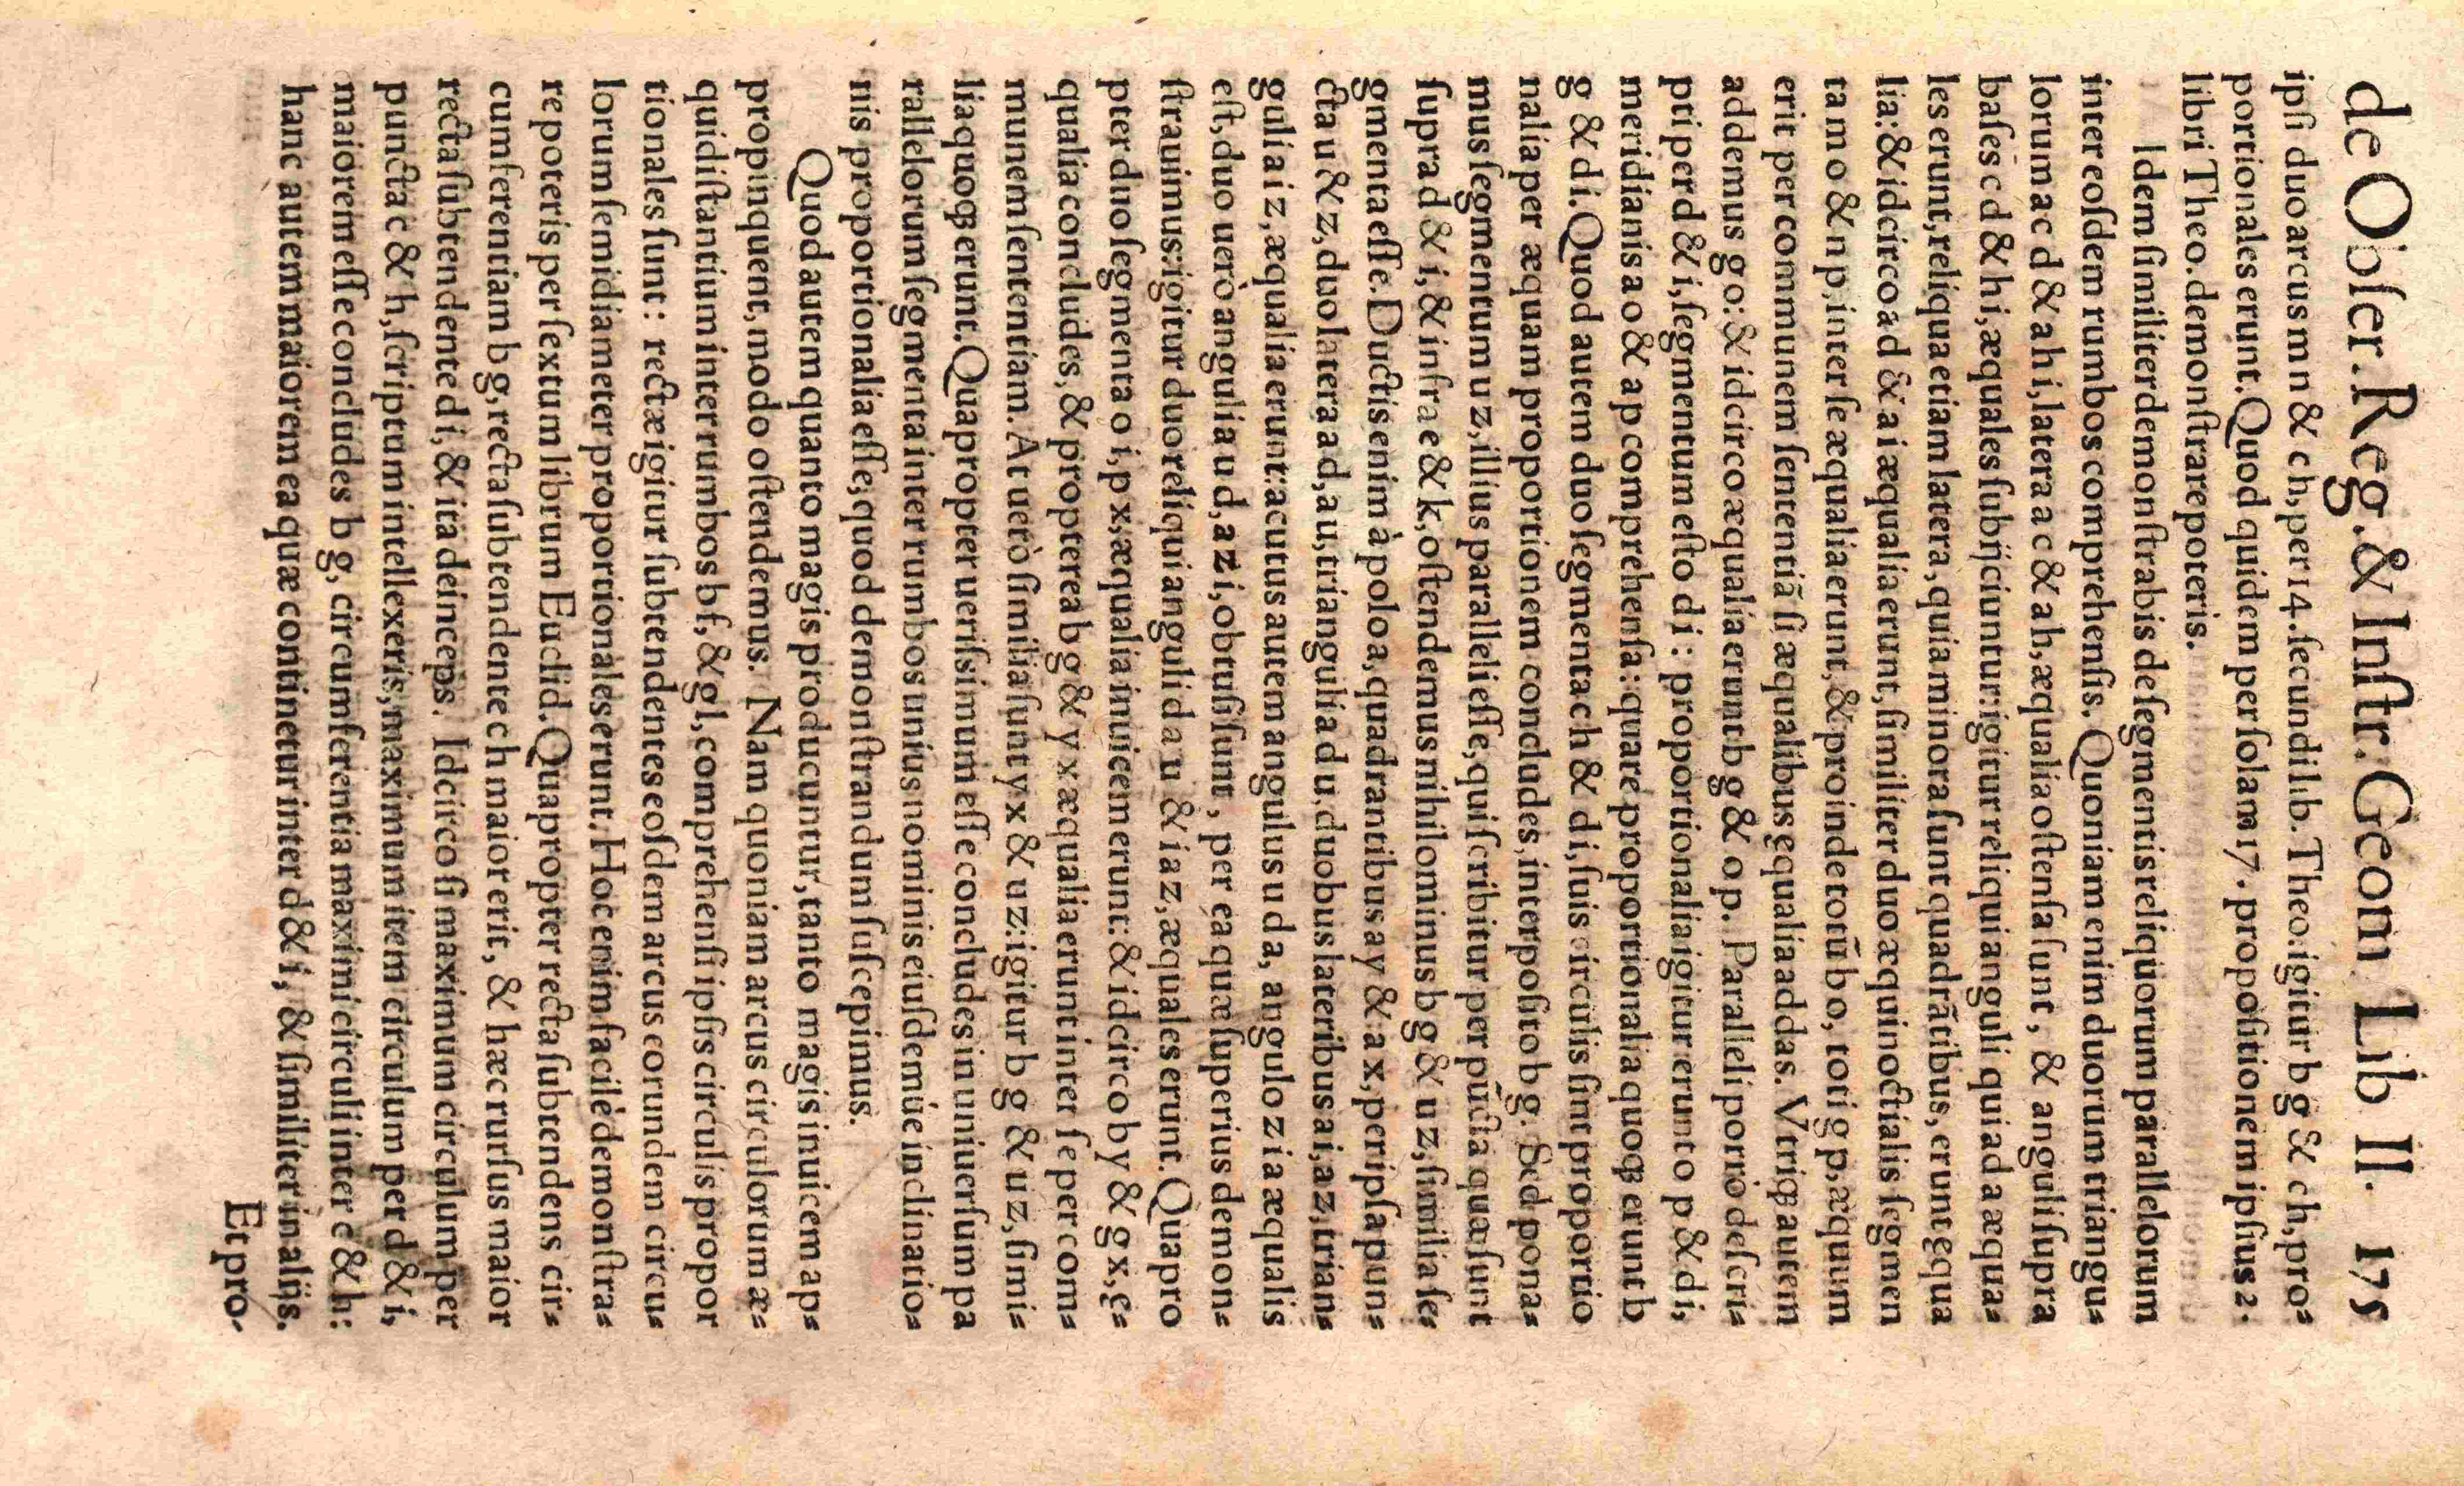 de Obſer. Reg. & Inſtr. Geom Lib II. 175
ipſi duo arcus m n & c h, per 14. ſecundi lib. Theo. igitur b g & c h, pro⸗
portionales erunt. Quod quidem per ſolam 17. propoſitionem ipſius 2.
libri Theo. demonſtrare poteris.
Idem ſimiliter demonſtrabis de ſegmentis reliquorum parallelorum
inter eoſdem rumbos comprehenſis. Quoniam enim duorum triangu⸗
lorum a c d & a h i, latera a c & a h, æqualia oſtenſa ſunt, & anguli ſupra
baſes c d & h i, æquales ſubijciuntur: igitur reliqui anguli qui ad a æqua⸗
les erunt, reliqua etiam latera, quia minora ſunt quadrātibus, erunt ęqua
lia: & idcirco a d & a i æqualia erunt, ſimiliter duo æquinoctialis ſegmen
ta m o & n p, inter ſe æqualia erunt, & proinde totū b o, toti g p, æquum
erit per communem ſententiā ſi æqualibus ęqualia addas. Vtriqꝫ autem
addemus g o: & idcirco æqualia erunt b g & o p. Paralleli porrò deſcri⸗
pti per d & i, ſegmentum eſto d i: proportionalia igitur erunt o p & d i,
meridianis a o & a p comprehenſa: quare proportionalia quoqꝫ erunt b
g & d i. Quod autem duo ſegmenta c h & d i, ſuis circulis ſint proportio
nalia per æquam proportionem concludes, interpoſito b g. Sed pona⸗
mus ſegmentum u z, illius paralleli eſſe, qui ſcribitur per pūcta quæ ſunt
ſupra d & i, & infra e & k, oſtendemus nihilominus b g & u z, ſimilia ſe⸗
gmenta eſſe. Ductis enim à polo a, quadrantibus a y & a x, per ipſa pun⸗
cta u & z, duo latera a d, a u, trianguli a d u, duobus lateribus a i, a z, trian⸗
guli a i z, æqualia erunt: acutus autem angulus u d a, angulo z i a æqualis
eſt, duo uerò anguli a u d, a z i, obtuſi ſunt, per ea quæ ſuperius demon⸗
ſtrauimus: igitur duo reliqui anguli d a u & i a z, æquales erunt. Quapro
pter duo ſegmenta o i, p x, æqualia inuicem erunt: & idcirco b y & g x, ę⸗
qualia concludes, & propterea b g & y x æqualia erunt inter ſe per com⸗
munem ſententiam. At uerò ſimilia ſunt y x & u z: igitur b g & u z, ſimi⸗
lia quoqꝫ erunt. Quapropter ueriſsimum eſſe concludes in uniuerſum pa
rallelorum ſegmenta inter rumbos unius nominis eiuſdemúe inclinatio⸗
nis proportionalia eſſe, quod demonſtrandum ſuſcepimus.
Quod autem quanto magis producuntur, tanto magis inuicem ap⸗
propinquent, modo oſtendemus. Nam quoniam arcus circulorum æ⸗
quidiſtantium inter rumbos b f, & g l, comprehenſi ipſis circulis propor
tionales ſunt: rectæ igitur ſubtendentes eoſdem arcus eorundem circu⸗
lorum ſemidiameter proportionales erunt. Hoc enim facilè demonſtra⸗
re poteris per ſextum librum Euclid. Quapropter recta ſubtendens cir⸗
cumferentiam b g, recta ſubtendente c h maior erit, & hæc rurſus maior
recta ſubtendente d i, & ita deinceps. Idcirco ſi maximum circulum per
puncta c & h, ſcriptum intellexeris, maximum item circulum per d & i,
maiorem eſſe concludes b g, circumferentia maximi circuli inter c & h:
hanc autem maiorem ea quæ continetur inter d & i, & ſimiliter in alijs.
Et pro-